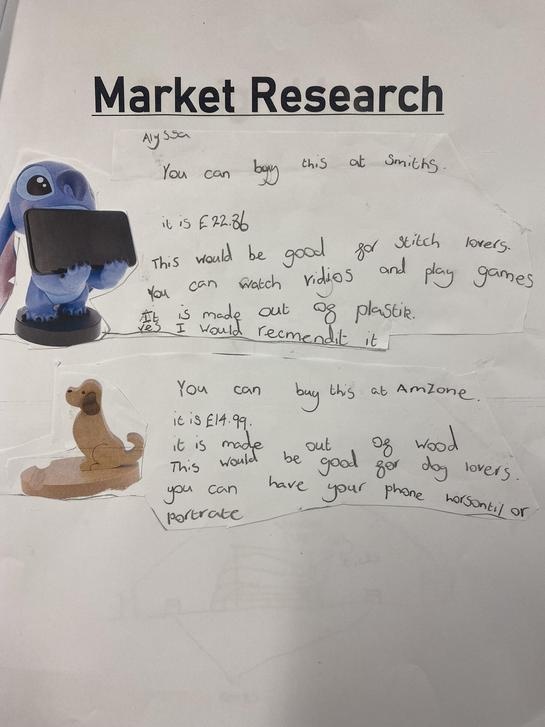 Market Research
Alyssa
You can buy this at Smiths.
it is £22.86
This would be good for stitch lovers.
You can watch vidjos and play games
It is made out of plastik.
yes I would recmendit it
You can buy this at AmZone.
it is £14.99.
it is made out of wood
This would be good for dog lovers.
you can have your phone horsontil or
portrate